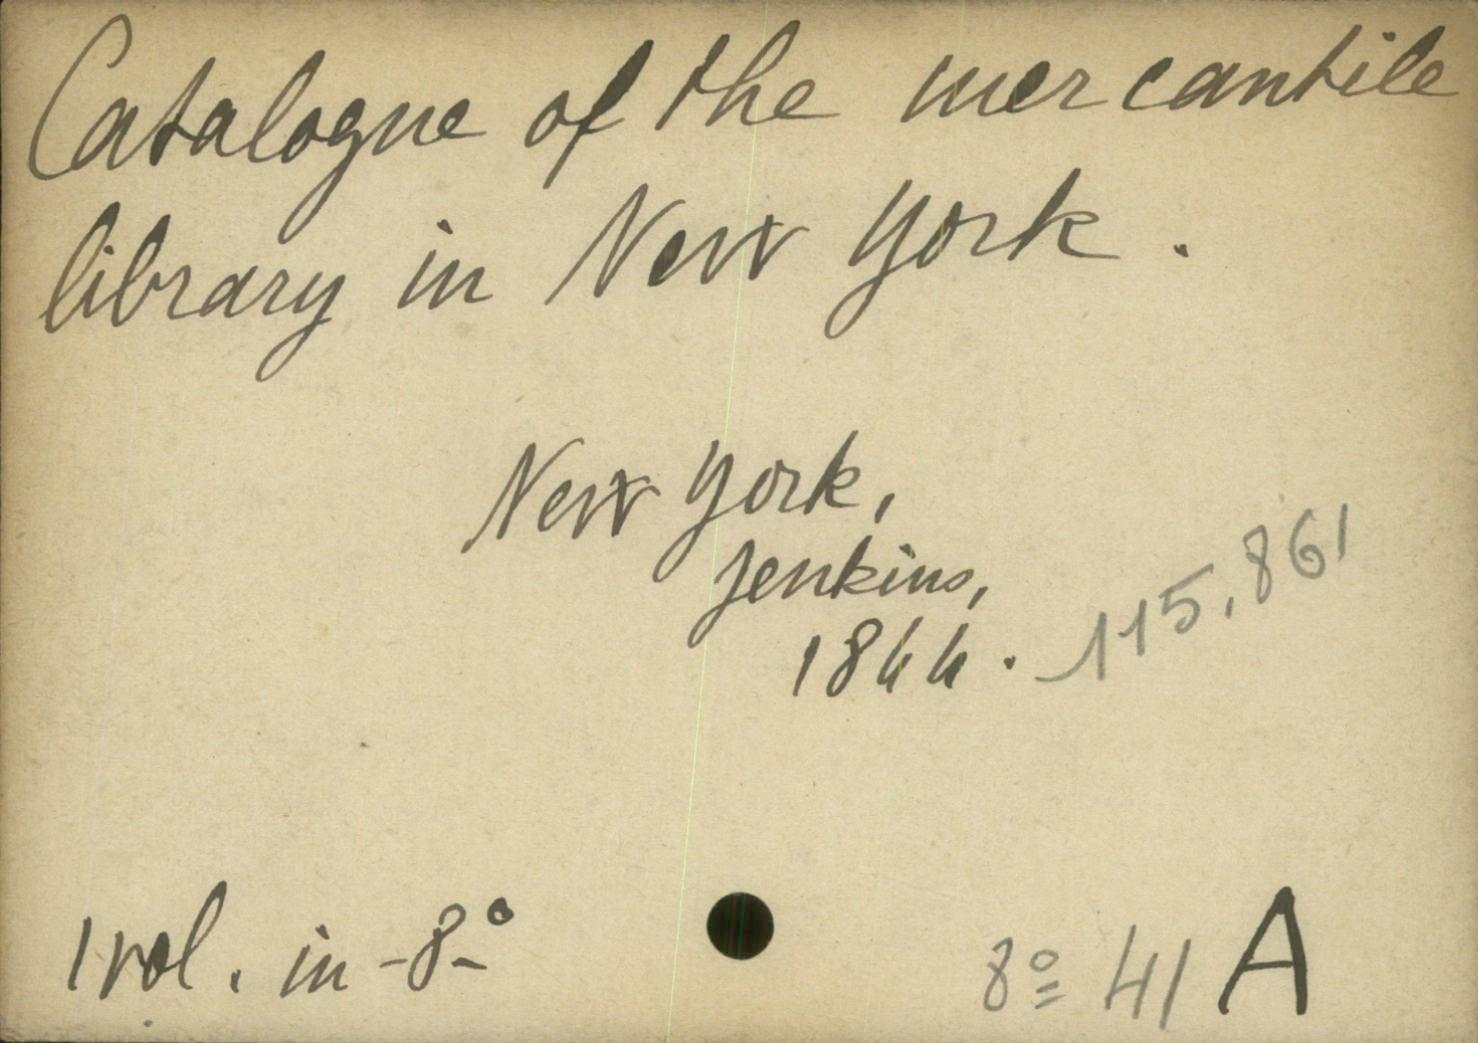 Catalogue of the mercantile
library in New York.
New York,
Jenkins,
1844.
115,861
1 vol. in-8°
8° 41 A